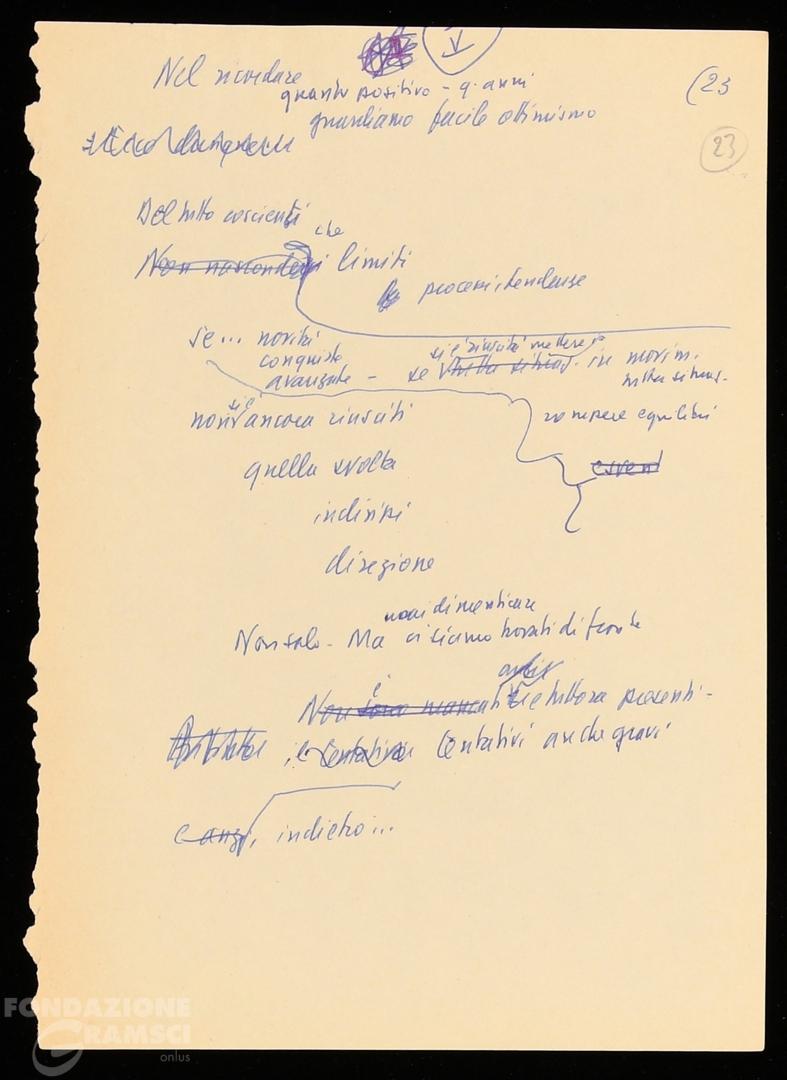 V
(23
23
Nel ricordare
quanto positivo - q. anni
guardiamo facile ottimismo
Del tutto coscienti
che
Non nasconderci limiti
processi tendenze
se... novità
conquiste
avanzate - se si è riusciti mettere in movim.
rompere equilibri
non si è ancora riusciti
quella svolta
indirizzi
direzione
non dimenticare
Non solo - Ma ci siamo trovati di fronte
è
Non sono mancati e tuttora presenti -
tentativi tentativi anche gravi
e anzi, indietro...
FONDAZIONE
GRAMSCI
onlus